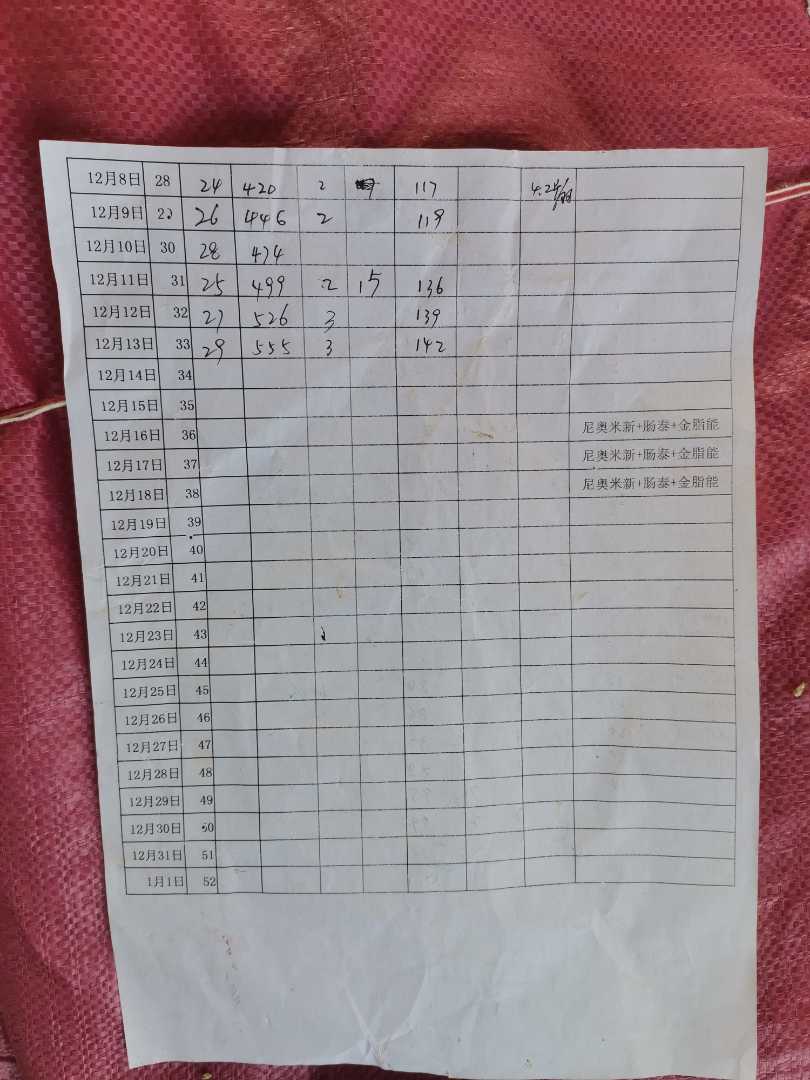 12月8日 28 24 420 2 117
12月9日 29 26 446 2 119
12月10日 30 28 474
12月11日 31 25 499 2 15 136
12月12日 32 27 526 3 139
12月13日 33 29 555 3 142
12月14日 34
12月15日 35
12月16日 36 尼奥米新+肠泰+金脂能
12月17日 37 尼奥米新+肠泰+金脂能
12月18日 38 尼奥米新+肠泰+金脂能
12月19日 39
12月20日 40
12月21日 41
12月22日 42
12月23日 43
12月24日 44
12月25日 45
12月26日 46
12月27日 47
12月28日 48
12月29日 49
12月30日 50
12月31日 51
1月1日 52